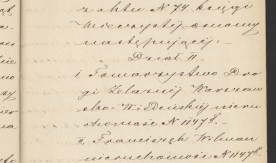 z aktu N 74. księgi
Wieczystéj umowy
następującéj.
Dział II.
1. Towarzystwo Dro-
gi Żelaznéj Warszaw-
sko-Wiedeńskiéj nieru-
chomość N 1147 B.
2. Franciszek Wilman
nieruchomość N 1147 B.